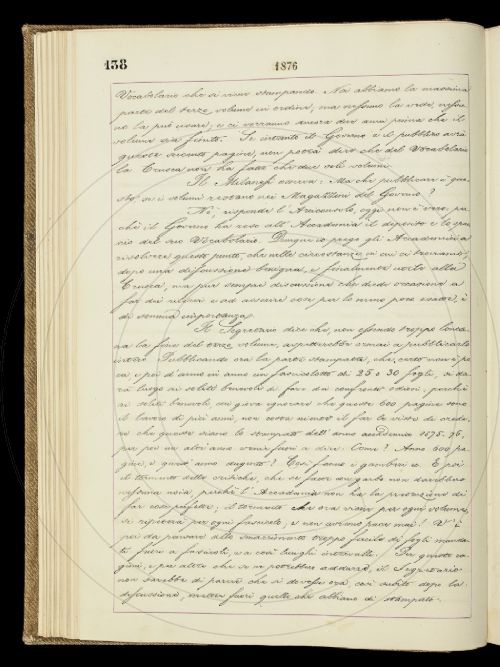 138
1876
Vocabolario che si viene stampando. Noi abbiamo la massima
parte del terzo volume in ordine, ma nessuno la vede, nessu
no la può usare, e ci vorranno ancora due anni prima che il
volume sia finito. Se intanto il Governo e il pubblico avrà
queste seicento pagine, non potrà dire che del Vocabolario
la Crusca non ha fatto che due soli volumi.
Il Milanesi osserva: Ma che pubblicare è que
sto, se i volumi restano nei Magazzini del Governo?
No, risponde l'Arciconsolo, oggi non è vero, per
chè il Governo ha reso all'Accademia il deposito e lo spac
cio del suo Vocabolario. Dunque io prego gli Accademici a
risolvere questo punto, che nelle circostanze in cui ci troviamo,
dopo una discussione benigna, e finalmente utile alla
Crusca, ma pur sempre discussione che diede occasione a
far dei rilievi e ad asserire cose per lo meno poco esatte, è
di somma importanza.
Il Segretario dice che, non essendo troppo lonta
na la fine del terzo volume, aspetterebbe ormai a pubblicarlo
intero. Pubblicando ora la parte stampata, che, certo non è po
ca e poi d'anno in anno un fascicoletto di 25 o 30 fogli, si da
rà luogo ai soliti brontoloni di fare dei confronti odiosi, perchè
ai soliti brontoloni cui giova ignorare che queste 600 pagine sono
il lavoro di più anni, non costa niente il far le viste di crede
re che queste siano le stampate dell'anno accademico 1875-76,
per poi un altro anno venir fuori a dire: Come? Anno 600 pa
gine, e quest'anno dugento? Così fanno i gamberi ec. E poi
il tormento delle critiche, che se fatte con garbo non darebbero
nessuna noia, perchè l'Accademia non ha la pretensione di
far cosa perfetta; il tormento che ora viene per ogni volume,
si ripeterà per ogni fascicolo, e non avremo pace mai! V'è
poi da pensare allo smarrimento troppo facile di fogli manda
ti fuori a fascicoli, e a così lunghi intervalli. Per queste ra
gioni, e per altre che se ne potrebbero addurre, il Segretario
non sarebbe di parere che si dovesse ora, così subito dopo la
discussione, metter fuori quello che abbiamo di stampato.